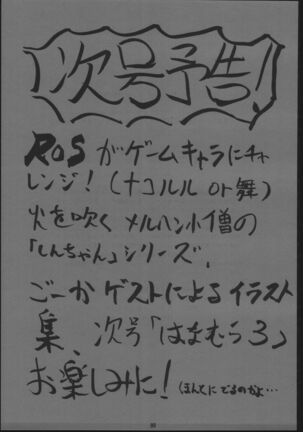 次号予告!
RoS がゲームキャラにチャ
レンジ! (ナコルル or 舞)
火を吹く メルヘン小僧の
「しんちゃん」シリーズ、
ごーか ゲストによる イラスト
集、次号「はまむら3」
お楽しみに! (ほんとに でるのかよ…